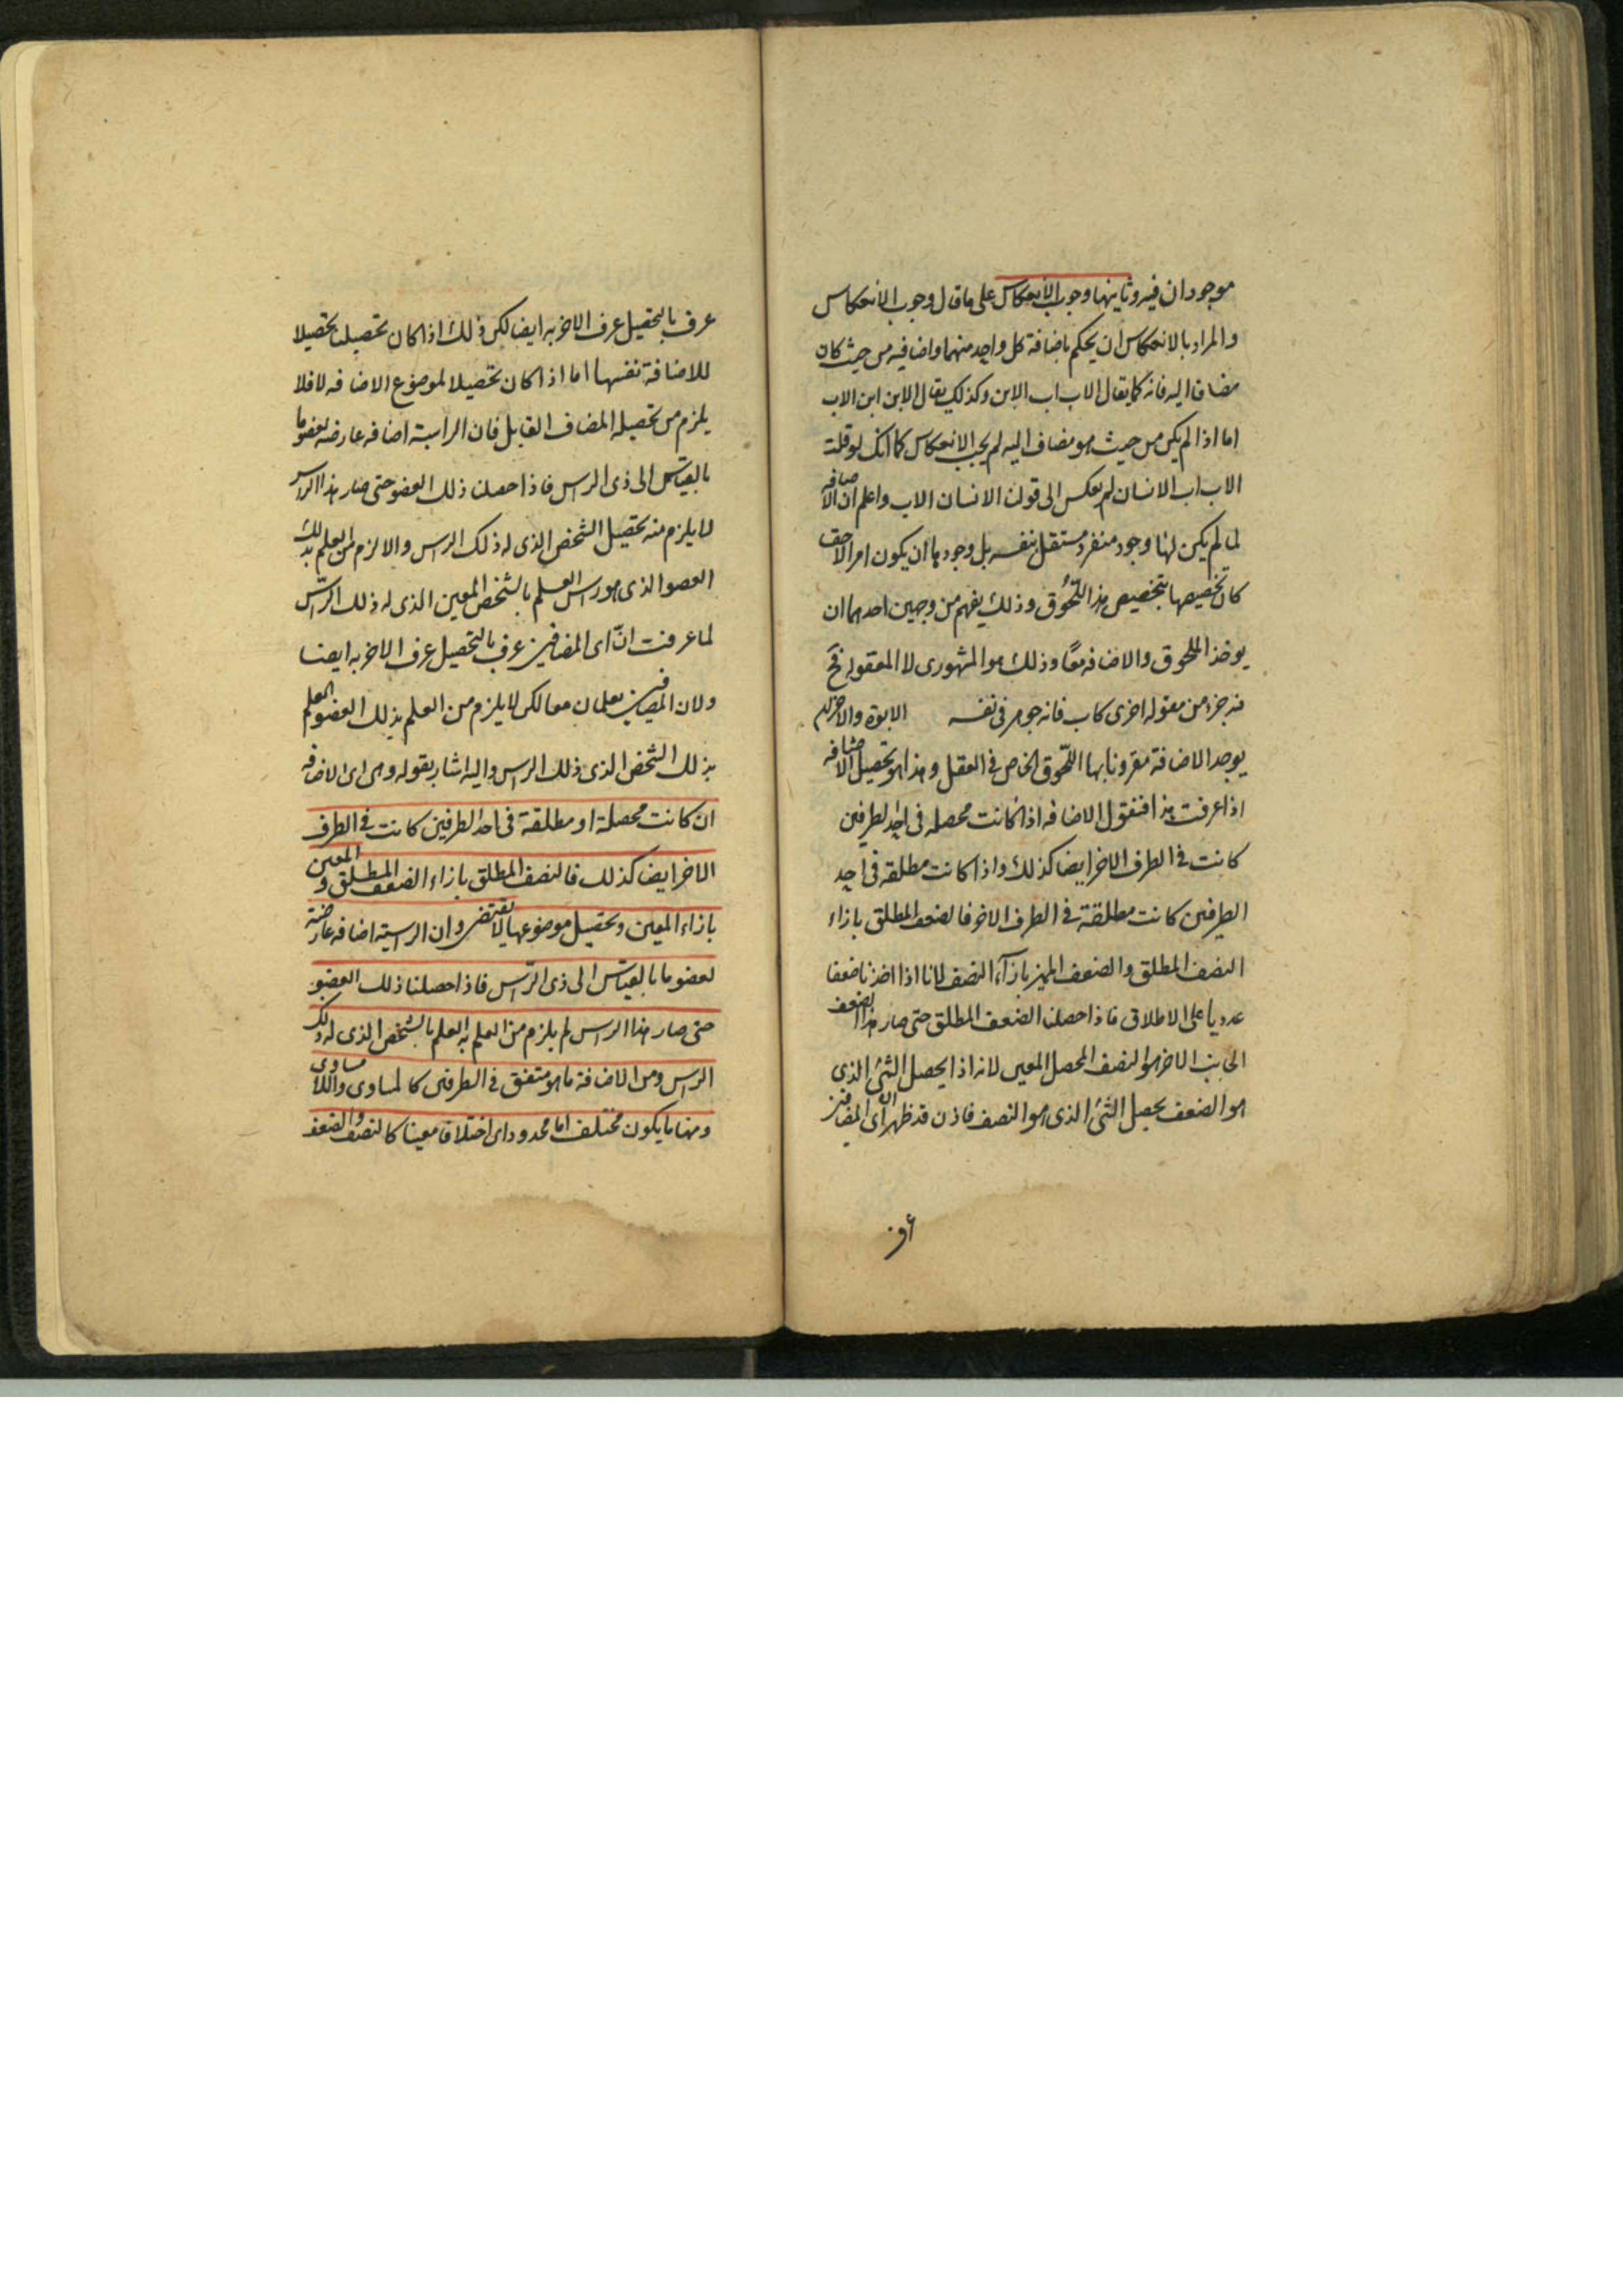 موجودان فيه وثانيها وجوب الانعكاس على ما قال وجوب الانعكاس
والمراد بالانعكاس ان يحكم باضافة كل واحد منهما واضافيه من حيث كان
مضافا اليه فانه كما يقال الاب اب الابن وكذلك يقال الابن ابن الاب
اما اذا لم يكن من حيث هو مضاف اليه لم يجب الانعكاس كما انك لو قلت
الاب اب الانسان لم يعكس الى قولك الانسان الاب واعلم ان الاضافه
لما لم يكن لها وجود منفرد مستقل بنفسه بل وجودها ان يكون امرا لاحقا
كان تخصيصها بتخصيص هذا اللحوق وذلك يفهم من وجهين احدهما ان
يوخذ الملحوق والاضافه معًا وذلك هو المشهورى لا المعقوله
فيه جزء من مقوله اخرى كاب فانه جوهر فى نفسه الابوة والاخر ان
يوجد الاضافة مقرونا بها اللحوق الخاص فى العقل وهذا هو تحصيل الاضافه
اذا عرفت هذا فنقول الاضافه اذا كانت محصله فى احد الطرفين
كانت فى الطرف الاخر ايضا كذلك واذا كانت مطلقه فى احد
الطرفين كانت مطلقة فى الطرف الاخر فالضعف المطلق بازاء
النصف المطلق والضعف المميز بازآء النصف لانا اذا اخذنا ضعفا
عدديا على الاطلاق فاذا حصلنا الضعف المطلق حتى صار هذا الضعف
الجانب الاخر هو النصف المحصل المعين لانه اذا يحصل الشئ الذى
هو الضعف يحصل الشئ الذى هو النصف فاذن قد ظهر ان اى المضافين
عرف بالتحصيل عرف الاخر به ايضا لكن ذلك اذا كان تحصيلنا تحصيلا
للاضافة نفسها اما اذا كان تحصيلا لموضوع الاضافه لا فلا
يلزم من تحصيله المضاف القابل فان الراسية اضافه عارضه لعضو ما
بالقياس الى ذى الراس فاذا حصلنا ذلك العضو حتى صار هذا الراس
لا يلزم منه تحصيل الشخص الذى له ذلك الراس والا لزم من العلم بذلك
العضو الذى هو راس العلم بالشخص المعين الذى له ذلك الرّاس
لما عرفت انّ اى المضافين عرف بالتحصيل عرف الاخر به ايضا
ولان المضافين يعلمان معا لكن لا يلزم من العلم بذلك العضو العلم
بذلك الشخص الذى ذلك الراس واليه اشار بقوله وهى اى الاضافه
ان كانت محصلة او مطلقة فى احد الطرفين كانت فى الطرف
الاخر ايضا كذلك فالنصف المطلق بازاء الضعف المطلق والمعين
بازاء المعين وتحصيل موضوعها لا يقتضى وان الراسية اضافه عارضة
لعضو ما بالقياس الى ذى الرّاس فاذا حصلنا ذلك العضو
حتى صار هذا الراس لم يلزم من العلم به العلم بالشخص الذى له ذلك
الراس ومن الاضافة ما هو متفق فى الطرفين كالمساوى والمساوى
ومنها ما يكون مختلف اما محدودا اى اختلافا معينا كالنصف والضعف